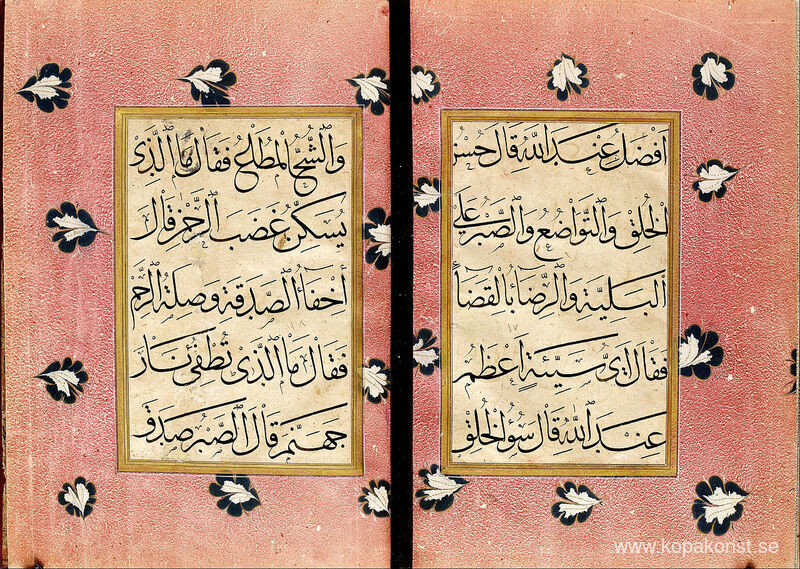 افضل عند الله قال حسن
الخلق والتواضع والصبر علي
البلية والرضاء بالقضاء
فقال اي سيئة اعظم
عند الله قال سوء الخلق
والشح المطاع فقال ما الذي
يسكن غضب الرحمن قال
أخفاء الصدقة وصلة الرحم
فقال ما الذي تطفئ نار
جهنم قال الصبر صدق
www.kopakonst.se